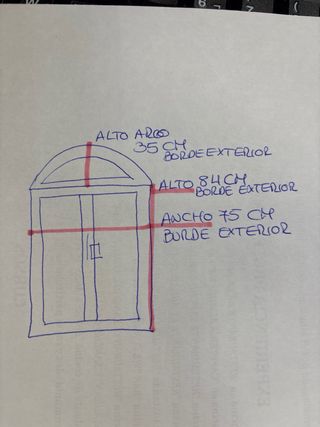 ALTO ARCO
35 CM
BORDE EXTERIOR
ALTO 84 CM
BORDE EXTERIOR
ANCHO 75 CM
BORDE EXTERIOR